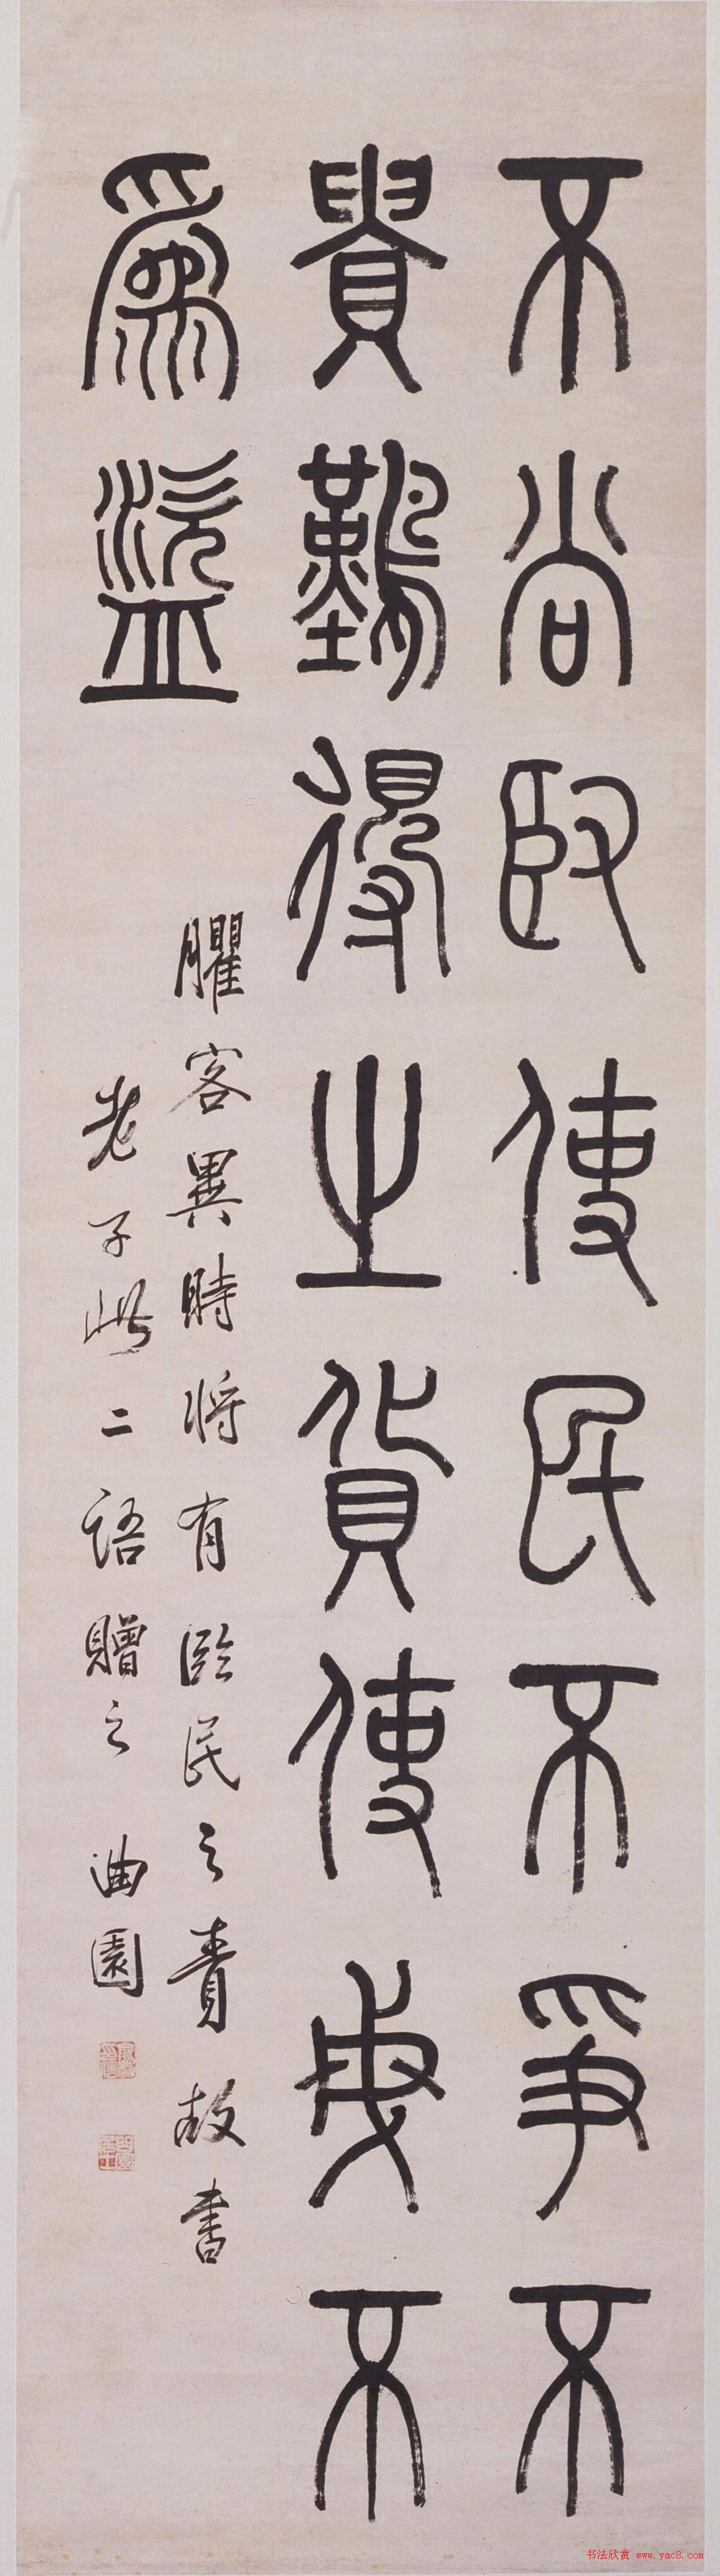 不尚臤使民不爭不
貴難得之貨使民不
爲盜
臞客異時將有臨民之責故書
老子此二語贈之 曲園
书法欣赏 www.yac8.com